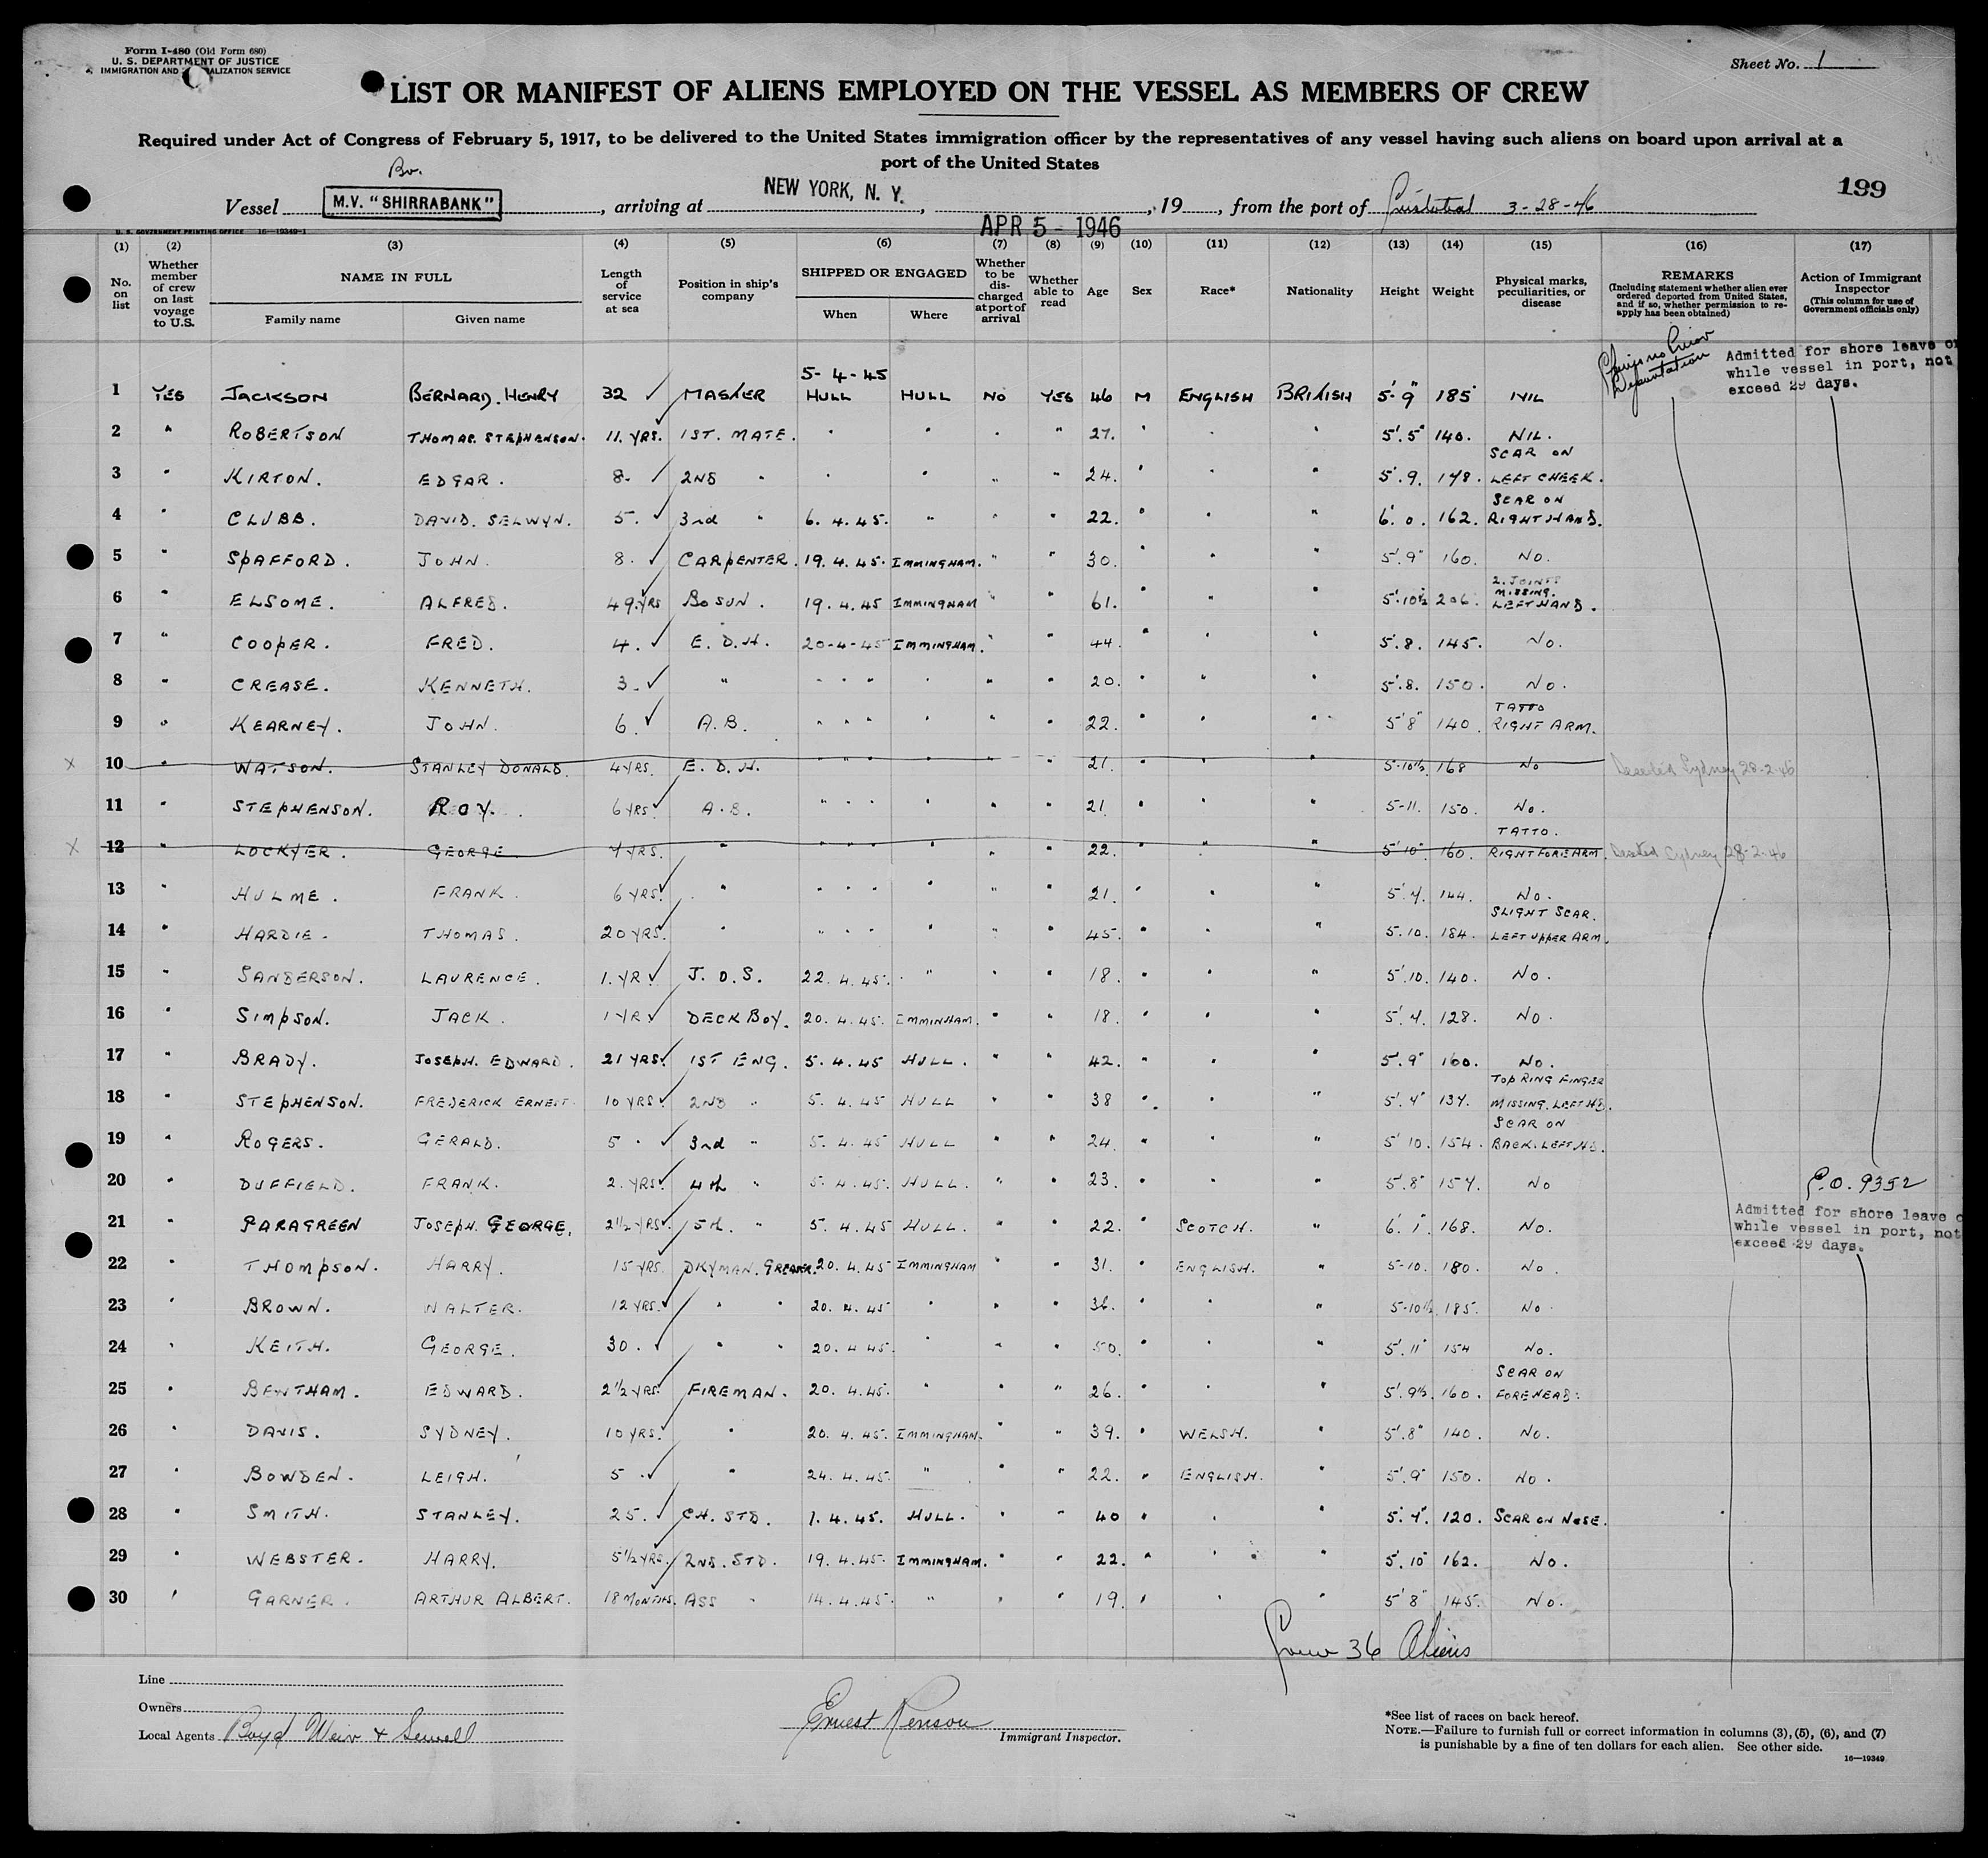 Form I-480 (Old Form 680)
U. S. DEPARTMENT OF JUSTICE
IMMIGRATION AND ALIZATION SERVICE
Sheet No. 1
LIST OR MANIFEST OF ALIENS EMPLOYED ON THE VESSEL AS MEMBERS OF CREW
Required under Act of Congress of February 5, 1917, to be delivered to the United States immigration officer by the representatives of any vessel having such aliens on board upon arrival at a
port of the United States
Br.
199
Vessel M.V. "SHIRRABANK", arriving at NEW YORK, N. Y., APR 5 - 1946, 19, from the port of Cristobal 3-28-46
U. S. GOVERNMENT PRINTING OFFICE 16—19349-1
(1) (2) (3) (4) (5) (6) (7) (8) (9) (10) (11) (12) (13) (14) (15) (16) (17)
No. on list
Whether member of crew on last voyage to U.S.
NAME IN FULL
Family name
Given name
Length of service at sea
Position in ship's company
SHIPPED OR ENGAGED
When
Where
Whether to be discharged at port of arrival
Whether able to read
Age
Sex
Race*
Nationality
Height
Weight
Physical marks, peculiarities, or disease
REMARKS
(Including statement whether alien ever ordered deported from United States, and if so, whether permission to re-apply has been obtained)
Action of Immigrant Inspector
(This column for use of Government officials only)
no Prior Deportation
Admitted for shore leave o
while vessel in port, not
exceed 29 days.
1 YES JACKSON BERNARD. HENRY 32 ✓ MASTER 5-4-45 HULL HULL NO YES 46 M ENGLISH BRITISH 5'-9" 185 NIL
2 " ROBERTSON THOMAS. STEPHENSON. 11. YRS. 1ST. MATE. " " " " 27. " " " 5'.5" 140. NIL.
3 " KIRTON. EDGAR. 8. ✓ 2ND " " " " " 24. " " " 5'.9. 178. SCAR ON LEFT CHEEK.
4 " CLUBB. DAVID. SELWYN. 5. ✓ 3rd " 6. 4. 45. " " " 22. " " " 6'. 0. 162. SCAR ON RIGHT HAND.
5 " SPAFFORD. JOHN. 8. ✓ CARPENTER. 19. 4. 45. IMMINGHAM. " " 30. " " " 5'.9" 160. NO.
6 " ELSOME. ALFRED. 49. YRS BOSUN. 19. 4. 45 IMMINGHAM " " 61. " " " 5'.10½ 206. 2. JOINTS MISSING. LEFT HAND.
7 " COOPER. FRED. 4. ✓ E. D. H. 20-4-45 IMMINGHAM. " " 44. " " " 5'.8. 145. NO.
8 " CREASE. KENNETH. 3. ✓ " " " " " " " 20. " " " 5'.8. 150. NO.
9 " KEARNEY. JOHN. 6. ✓ A. B. " " " " " " 22. " " " 5'8" 140. TATTO RIGHT ARM.
X 10 " WATSON. STANLEY DONALD. 4 YRS. E. D. H. " " " " " " 21. " " " 5-10½ 168 NO Deserted Sydney 28-2-46
11 " STEPHENSON. ROY. 6 YRS ✓ A. B. " " " " " " 21. " " " 5-11. 150. NO.
X 12 " LOCKYER. GEORGE. 4 YRS. " " " " " " " 22. " " " 5'10" 160. TATTO. RIGHT FOREARM. Deserted Sydney 28-2-46
13 " HULME. FRANK. 6 YRS. ✓ " " " " " " " 21. " " " 5'.4. 144. NO.
14 " HARDIE. THOMAS. 20 YRS. ✓ " " " " " " " 45. " " " 5'.10. 184. SLIGHT SCAR. LEFT UPPER ARM.
15 " SANDERSON. LAURENCE. 1. YR ✓ J. O. S. 22. 4. 45. " " " 18. " " " 5'.10. 140. NO.
16 " SIMPSON. JACK. 1 YR ✓ DECK BOY. 20. 4. 45. IMMINHAM. " " 18. " " " 5'.4. 128. NO.
17 " BRADY. JOSEPH. EDWARD. 21 YRS. ✓ 1ST ENG. 5. 4. 45 HULL. " " 42. " " " 5'.9" 160. NO.
18 " STEPHENSON. FREDERICK ERNEST. 10 YRS. ✓ 2ND " 5. 4. 45 HULL " " 38 " " " 5'.4" 134. TOP RING FINGER MISSING. LEFT HD.
19 " ROGERS. GERALD. 5. ✓ 3rd " 5. 4. 45 HULL " " 24. " " " 5'10. 154. SCAR ON BACK. LEFT HD.
20 " DUFFIELD. FRANK. 2. YRS. ✓ 4th " 5. 4. 45. HULL. " " 23. " " " 5'.8" 154. NO P.O. 9352
21 " PARAGREEN JOSEPH. GEORGE. 2½ YRS. ✓ 5th. " 5. 4. 45 HULL. " " 22. " SCOTCH. " 6'. 1" 168. NO.
Admitted for shore leave o
while vessel in port, not
exceed 29 days.
22 " THOMPSON. HARRY. 15 YRS. DKYMAN. GREASER. 20. 4. 45 IMMINGHAM " " 31. " ENGLISH. " 5-10. 180. NO.
23 ' BROWN. WALTER. 12 YRS. ✓ " " 20. 4. 45 " " " 36. " " " 5-10½ 185. NO.
24 ' KEITH. GEORGE. 30. ✓ " " 20. 4 45. " " " 50. " " " 5'.11" 154 NO.
25 " BENTHAM. EDWARD. 2½ YRS. FIREMAN. 20. 4. 45. " " " 26. " " " 5'.9½. 160. SCAR ON FOREHEAD.
26 " DAVIS. SYDNEY. 10 YRS. ✓ " 20. 4. 45. IMMINGHAM. " " 39. " WELSH. " 5'.8" 140. NO.
27 " BOWDEN. LEIGH. 5. ✓ " 24. 4. 45. " " " 22. " ENGLISH. " 5'.9" 150. NO.
28 " SMITH. STANLEY. 25. ✓ CH. STD. 1. 4. 45. HULL. " " 40 " " " 5'. 4". 120. SCAR ON NOSE.
29 " WEBSTER. HARRY. 5½ YRS. 2ND. STD. 19. 4. 45. IMMINGHAM. " " 22. " " " 5'. 10" 162. NO.
30 ' GARNER. ARTHUR ALBERT. 18 MONTHS. ASS " 14. 4. 45. " " " 19. " " " 5'8" 145. NO.
36 Aliens
Line
Owners
Local Agents Boyd Weir & Sewell
Ernest Renson
Immigrant Inspector.
*See list of races on back hereof.
NOTE.—Failure to furnish full or correct information in columns (3), (5), (6), and (7)
is punishable by a fine of ten dollars for each alien. See other side.
16—19349